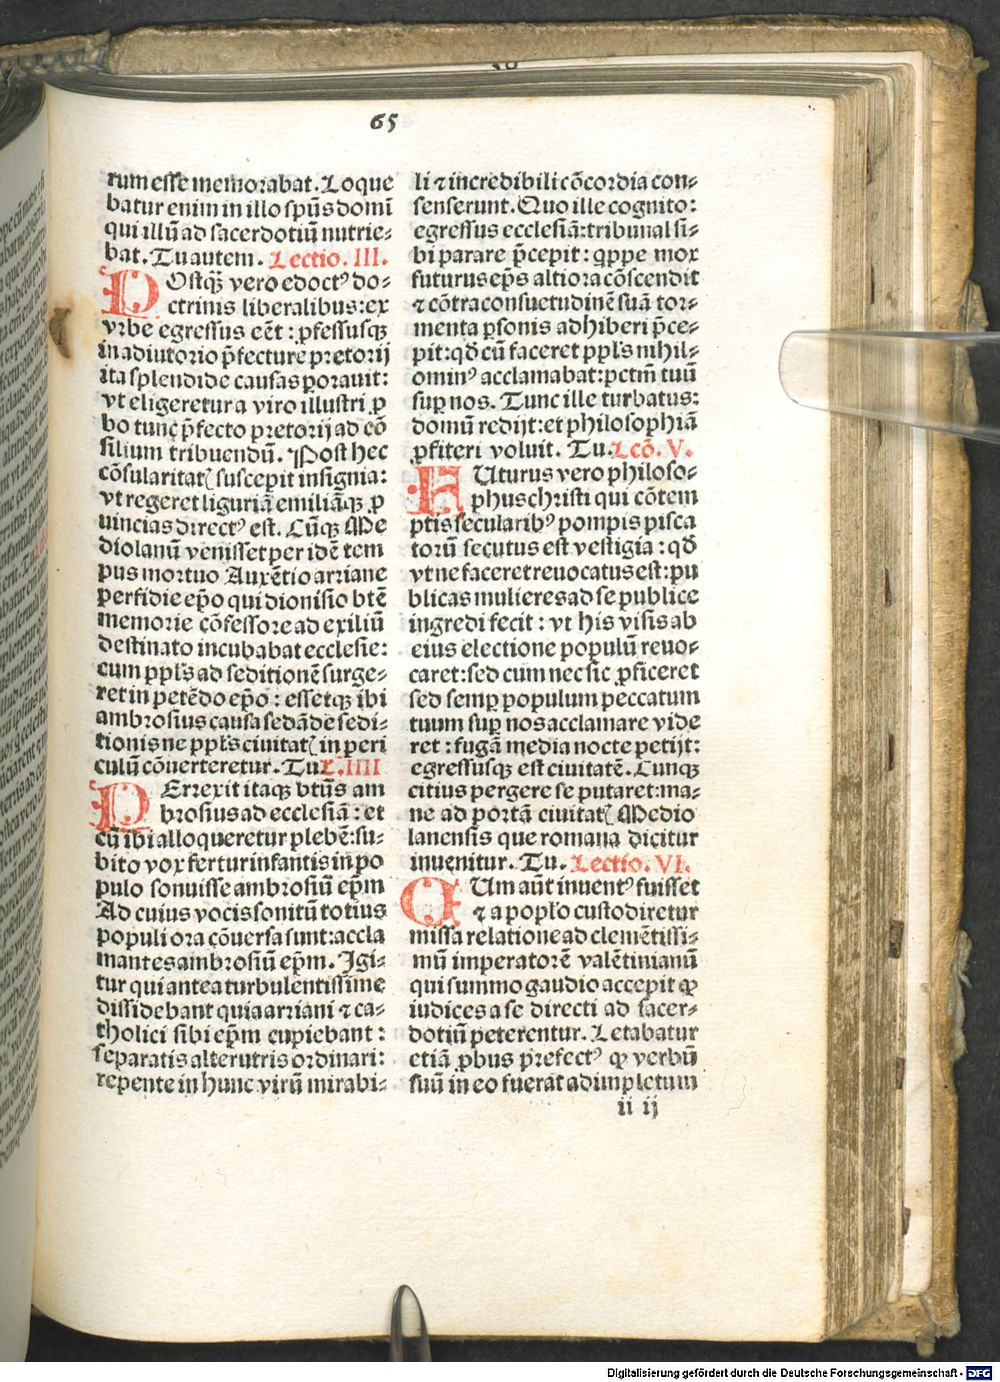 65
rum esse memorabat. Loque
batur enim in illo spūs domī
qui illū ad sacerdotiū nutrie-
bat. Tu autem. Lectio. III.
POstq̄ꝫ vero edoctꝰ do-
ctrinis liberalibus: ex
vrbe egressus eēt: ꝓfessusqꝫ
in adiutorio p̄fecture pretorij
ita splendide causas ꝑorauit:
vt eligeretur a viro illustri ꝓ
bo tunc p̄fecto pretorij ad cō
silium tribuendū. Post hec
cōsularitatꝭ suscepit insignia:
vt regeret liguriā emiliāqꝫ ꝓ
uincias directꝰ est. Cūqꝫ Me
diolanū venisset per idē tem
pus mortuo Auxētio arriane
perfidie epo qui dionisio btē
memorie cōfessore ad exiliū
destinato incubabat ecclesie:
cum ppls ad seditionē surge-
ret in petēdo epo: essetqꝫ ibi
ambrosius causa sedāde sedi-
tionis ne ppls ciuitatꝭ in peri
culū cōuerteretur. Tu L. IIII
PErrexit itaqꝫ btūs am
brosius ad ecclesiā: et
cū ibi alloqueretur plebē: su-
bito vox fertur infantis in po
pulo sonuisse ambrosiū ep̄m
Ad cuius vocis sonitū totius
populi ora cōuersa sunt: accla
mantes ambrosiū ep̄m. Igi-
tur qui antea turbulentissime
dissidebant quia arriani ⁊ ca-
tholici sibi ep̄m cupiebant:
separatis alterutris ordinari:
repente in hunc virū mirabi-
li ⁊ incredibili cōcordia con-
senserunt. Quo ille cognito:
egressus ecclesiā: tribunal si-
bi parare p̄cepit: qppe mox
futurus ep̄s altiora cōscendit
⁊ cōtra consuetudinē suā tor-
menta ꝑsonis adhiberi p̄ce-
pit: qđ cū faceret ppls nihil-
ominꝰ acclamabat: pctm̄ tuū
suꝑ nos. Tunc ille turbatus:
domū redijt: et philosophiā
ꝓfiteri voluit. Tu. Lcō. V.
FUturus vero philoso-
phus christi qui cōtem
ptis secularibꝰ pompis pisca
torū secutus est vestigia: qđ
vt ne faceret reuocatus est: pu
blicas mulieres ad se publice
ingredi fecit: vt his visis ab
eius electione populū reuo-
caret: sed cum nec sic ꝓficeret
sed semꝑ populum peccatum
tuum suꝑ nos acclamare vide
ret: fugā media nocte petijt:
egressusqꝫ est ciuitatē. Cunqꝫ
citius pergere se putaret: ma-
ne ad portā ciuitatꝭ Medio
lanensis que romana dicitur
inuenitur. Tu. Lectio. VI.
CUm aūt inuentꝰ fuisset
⁊ a poplo custodiretur
missa relatione ad clemētissi-
mū imperatorē valētinianū
qui summo gaudio accepit ꝙ
iudices a se directi ad sacer-
dotiū peterentur. Letabatur
etiā ꝓbus prefectꝰ ꝙ verbū
suū in eo fuerat adimpletum
ii ij
Digitalisierung gefördert durch die Deutsche Forschungsgemeinschaft - DFG